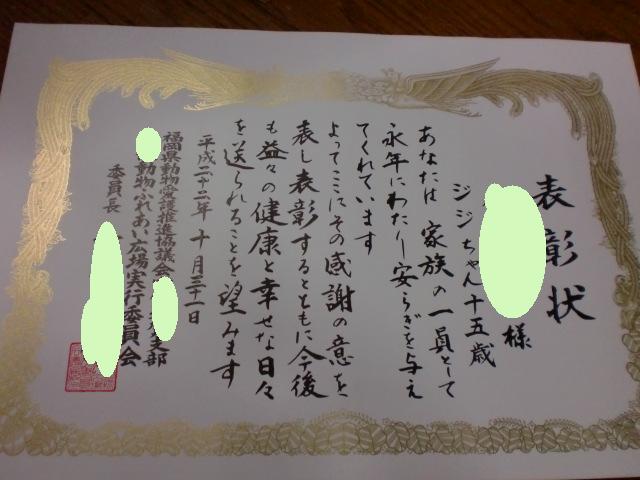 表彰状
様
ジジちゃん十五歳
あなたは家族の一員として
永年にわたり安らぎを与え
てくれています
よってここにその感謝の意を
表し表彰するとともに今後
も益々の健康と幸せな日々
を送られることを望みます
平成二十二年十月三十一日
福岡県動物愛護推進協議会 支部
動物ふれあい広場実行委員会
委員長